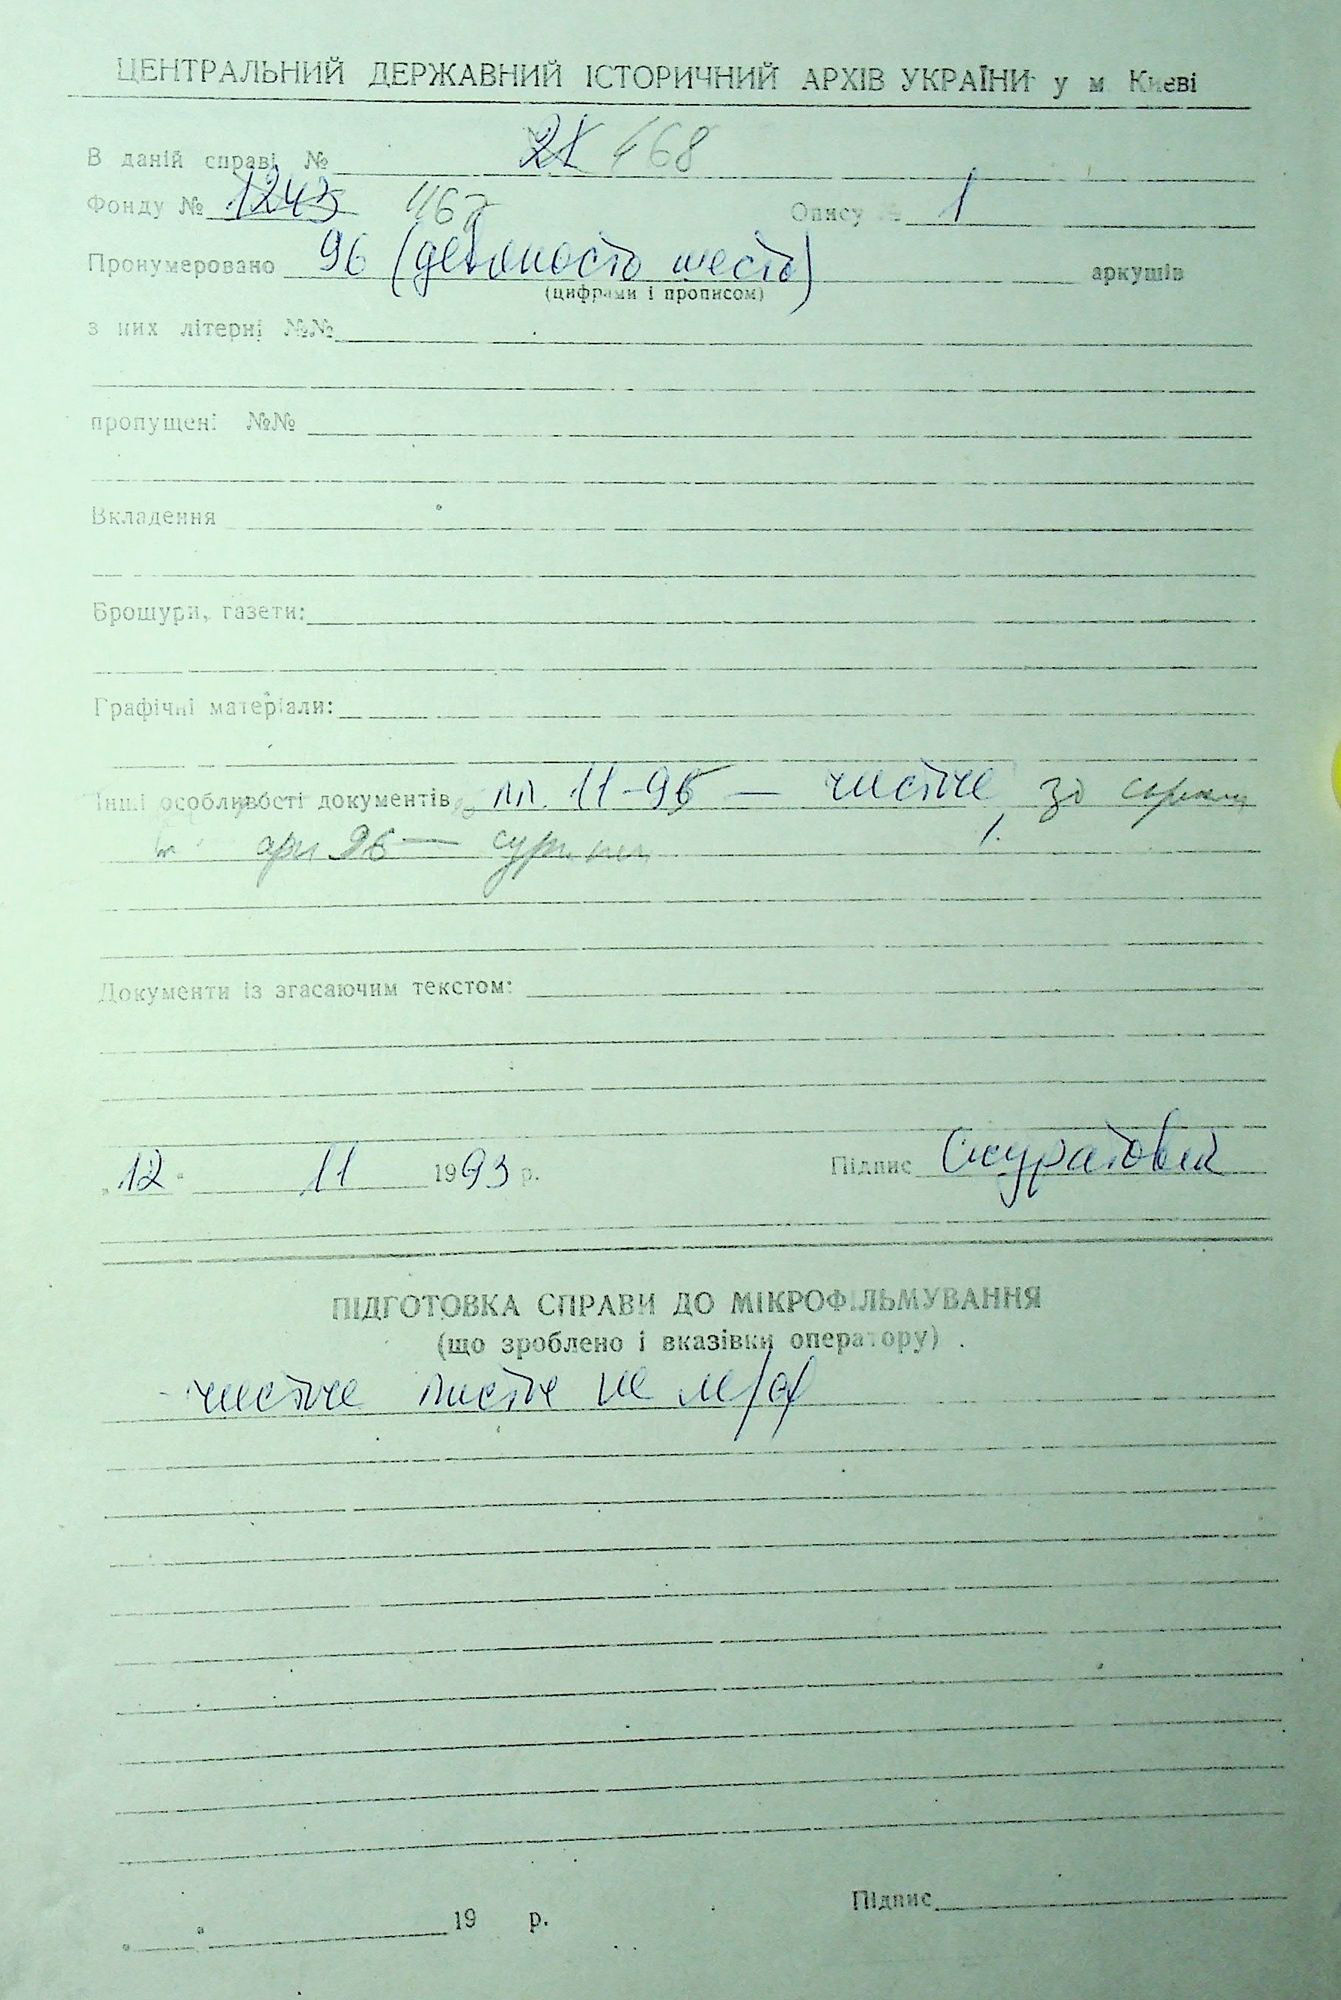 ЦЕНТРАЛЬНИЙ ДЕРЖАВНИЙ ІСТОРИЧНИЙ АРХІВ УКРАЇНИ у м Києві
В даній справі № 21 468
Фонду № 1243 1167 Опису № 1
Пронумеровано 96 (девяносто шесть) аркушів
(цифрами і прописом)
з них літерні №№
пропущені №№
Вкладення
Брошури, газети:
Графічні матеріали:
Інші особливості документів лл. 11-96 — чистые
96 —
Документи із згасаючим текстом:
„12“ 11 1993 р. Підпис
ПІДГОТОВКА СПРАВИ ДО МІКРОФІЛЬМУВАННЯ
(що зроблено і вказівки оператору)
- чистые листы не м/ф
„ “ 19 р. Підпис